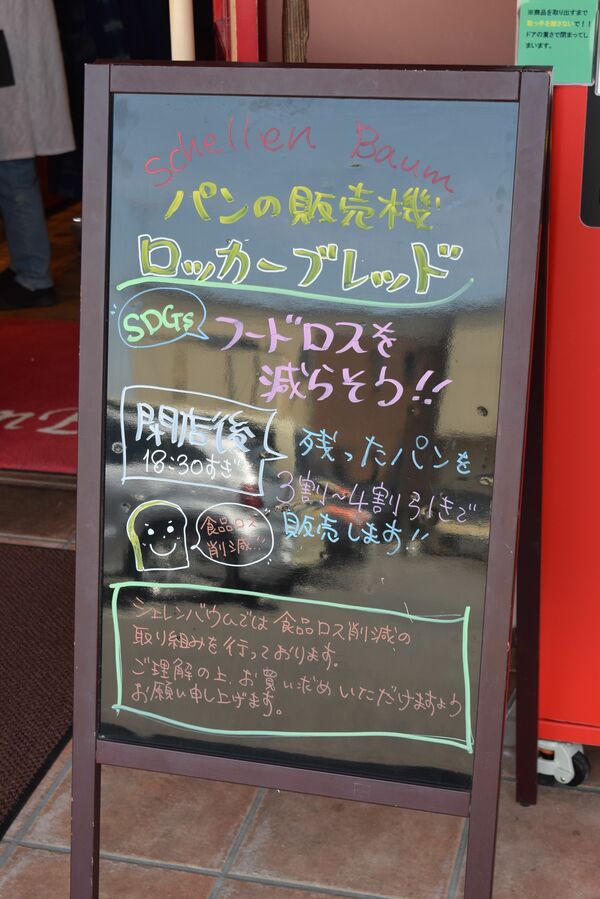 ※商品を取り出すまで
取っ手を離さないで!!
ドアの重さで閉まってし
まいます。
Schellen Baum
パンの販売機
ロッカーブレッド
SDGs
フードロスを
減らそう!!
閉店後
18:30すぎ
残ったパンを
3割~4割引きで
販売します!!
食品ロス
削減!!
シェレンバウムでは食品ロス削減の
取り組みを行っております。
ご理解の上、お買いだめいただけますよう
お願い申し上げます。